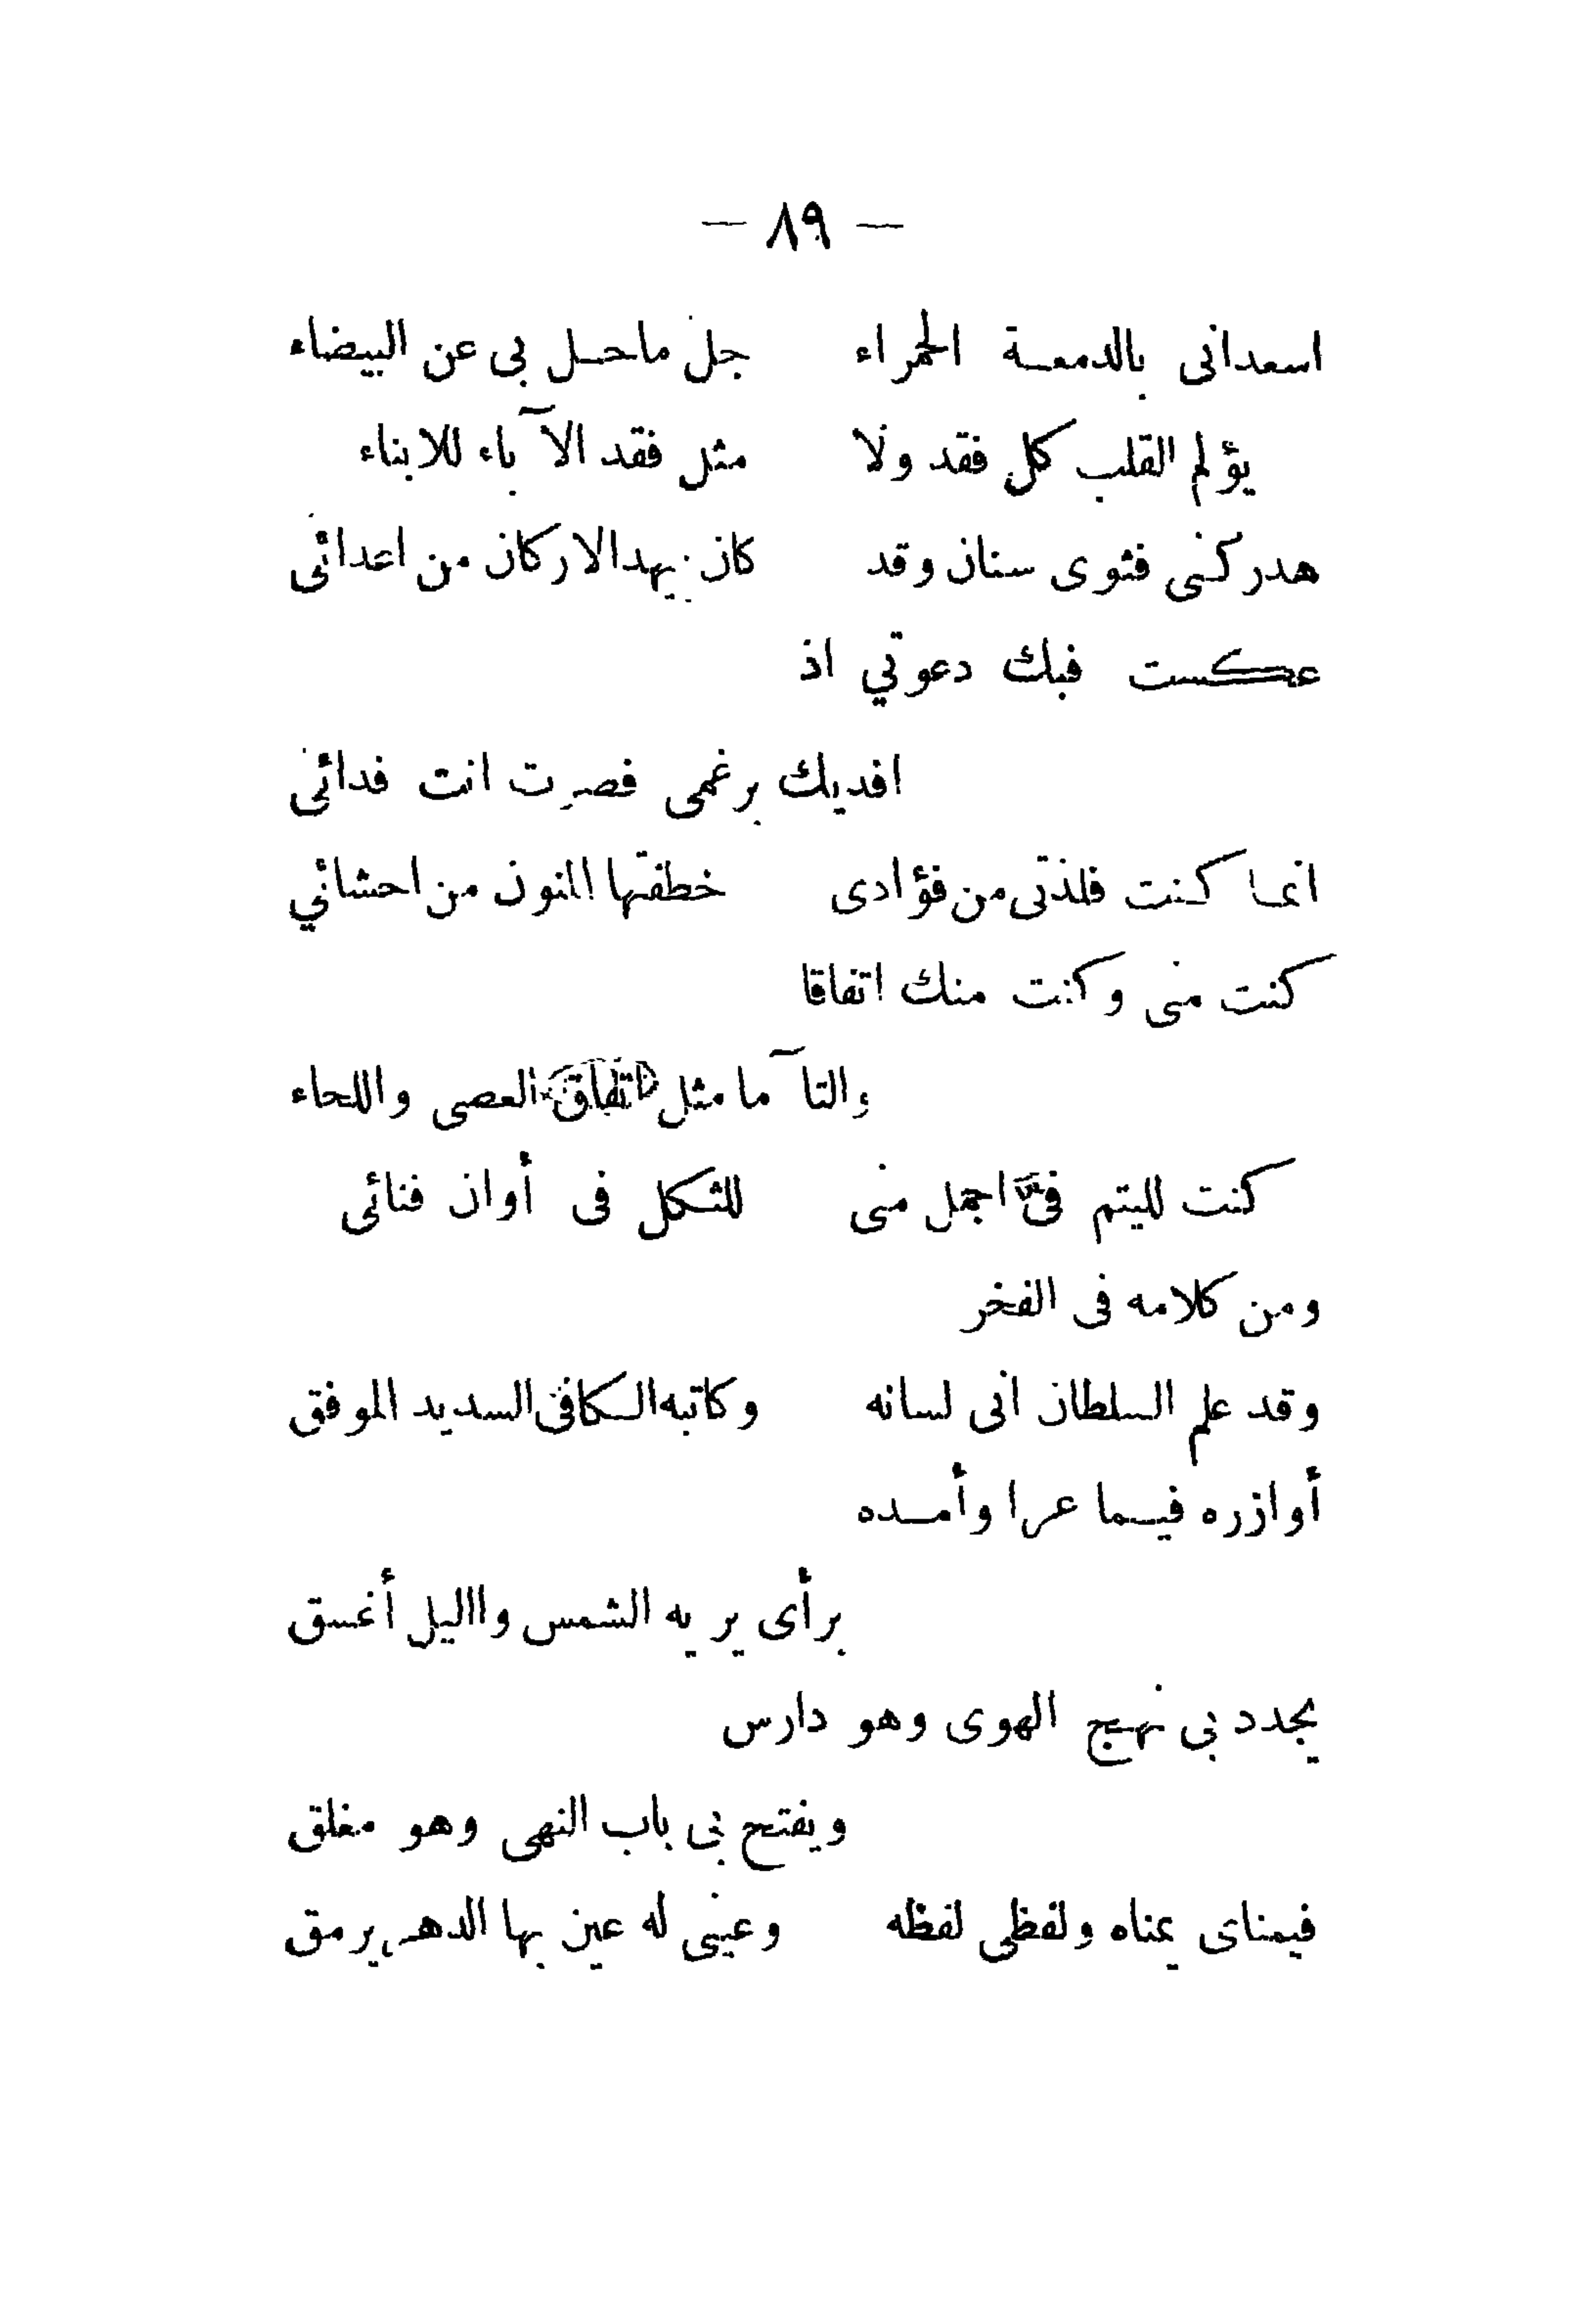 — ٨٩ —
اسعدانى بالدمعة الحمراء جل ماحل بى عن البيضاء
يؤلم القلب كل فقد ولا مثل فقد الآباء للابناء
هدركنى فثوى سنان وقد كان يهدالاركان من اعدائى
عكست فبك دعوتي اذ
افديك برغمى فصرت انت فدائى
انما كنت فلذتى من فؤادى خطفتها المنون من احشائي
كنت منى وكنت منك اتفاقا
والتآما مثل اتفاق العصى واللحاء
كنت لليتم فى اجمل منى للثكل فى أوان فنائى
ومن كلامه فى الفخر
وقد علم السلطان انى لسانه وكاتبه الكافى السديد الموفق
أوازره فيما عرا وأمده
برأى يريه الشمس والليل أغسق
يجدد بى نهج الهوى وهو دارس
ويفتح بى باب النهى وهو مغلق
فيمناى يمناه ولفظى لفظه وعينى له عين بها الدهر يرمق